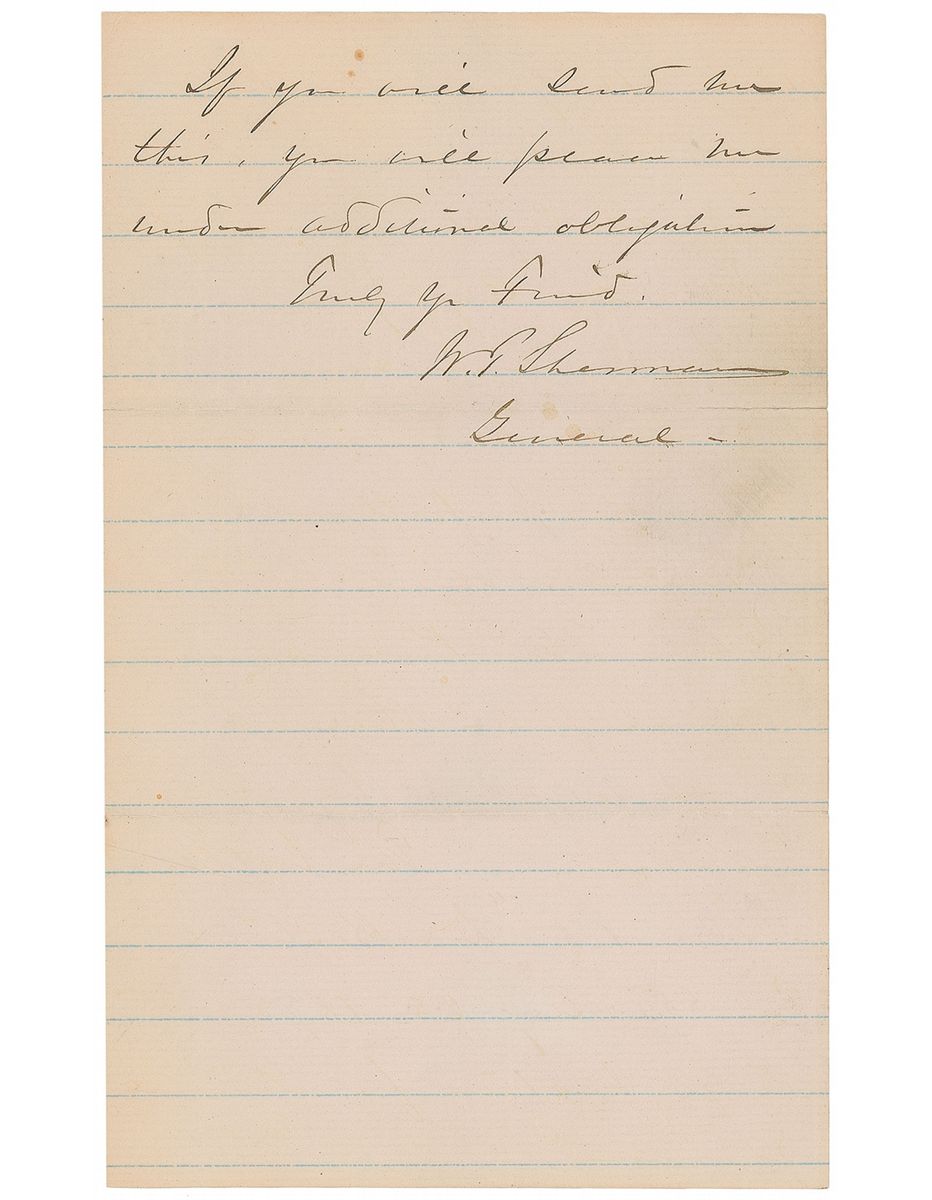 If you will send me
this, you will place me
under additional obligation
Truly Yr Friend.
W.T. Sherman
General -